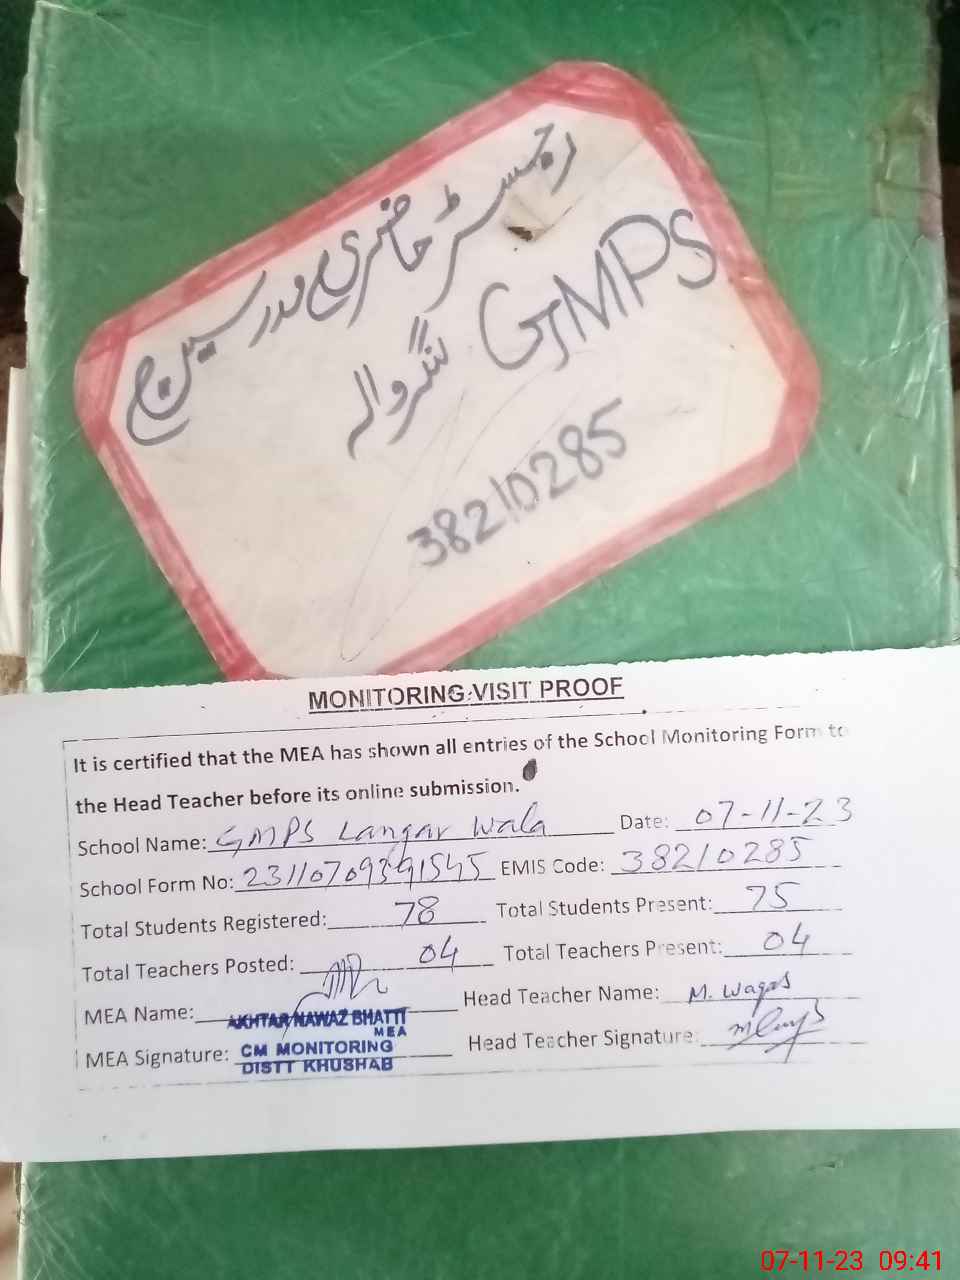 رجسٹر حاضری مدرسین
GMPS لنگر والہ
38210285
MONITORING VISIT PROOF
It is certified that the MEA has shown all entries of the School Monitoring Form to
the Head Teacher before its online submission.
School Name: GMPS Langar Wala Date: 07-11-23
School Form No: 23110709391545 EMIS Code: 38210285
Total Students Registered: 78 Total Students Present: 75
Total Teachers Posted: 04 Total Teachers Present: 04
MEA Name: AKHTAR NAWAZ BHATTI Head Teacher Name: M. Waqas
MEA
MEA Signature: CM MONITORING Head Teacher Signature:
DISTT KHUSHAB
07-11-23 09:41